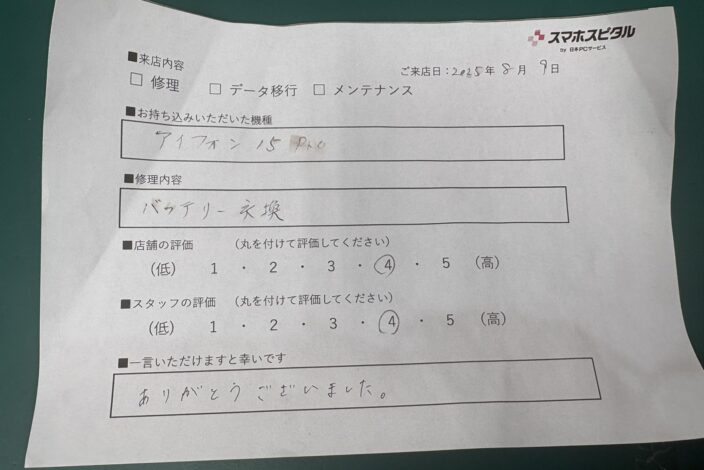 スマホスピタル
by 日本PCサービス
■来店内容
ご来店日：2025年 8月 9日
□ 修理 □ データ移行 □ メンテナンス
■お持ち込みいただいた機種
アイフォン 15 Pro
■修理内容
バッテリー交換
■店舗の評価 （丸を付けて評価してください）
（低） 1 ・ 2 ・ 3 ・ 4 ・ 5 （高）
■スタッフの評価 （丸を付けて評価してください）
（低） 1 ・ 2 ・ 3 ・ 4 ・ 5 （高）
■一言いただけますと幸いです
ありがとうございました。